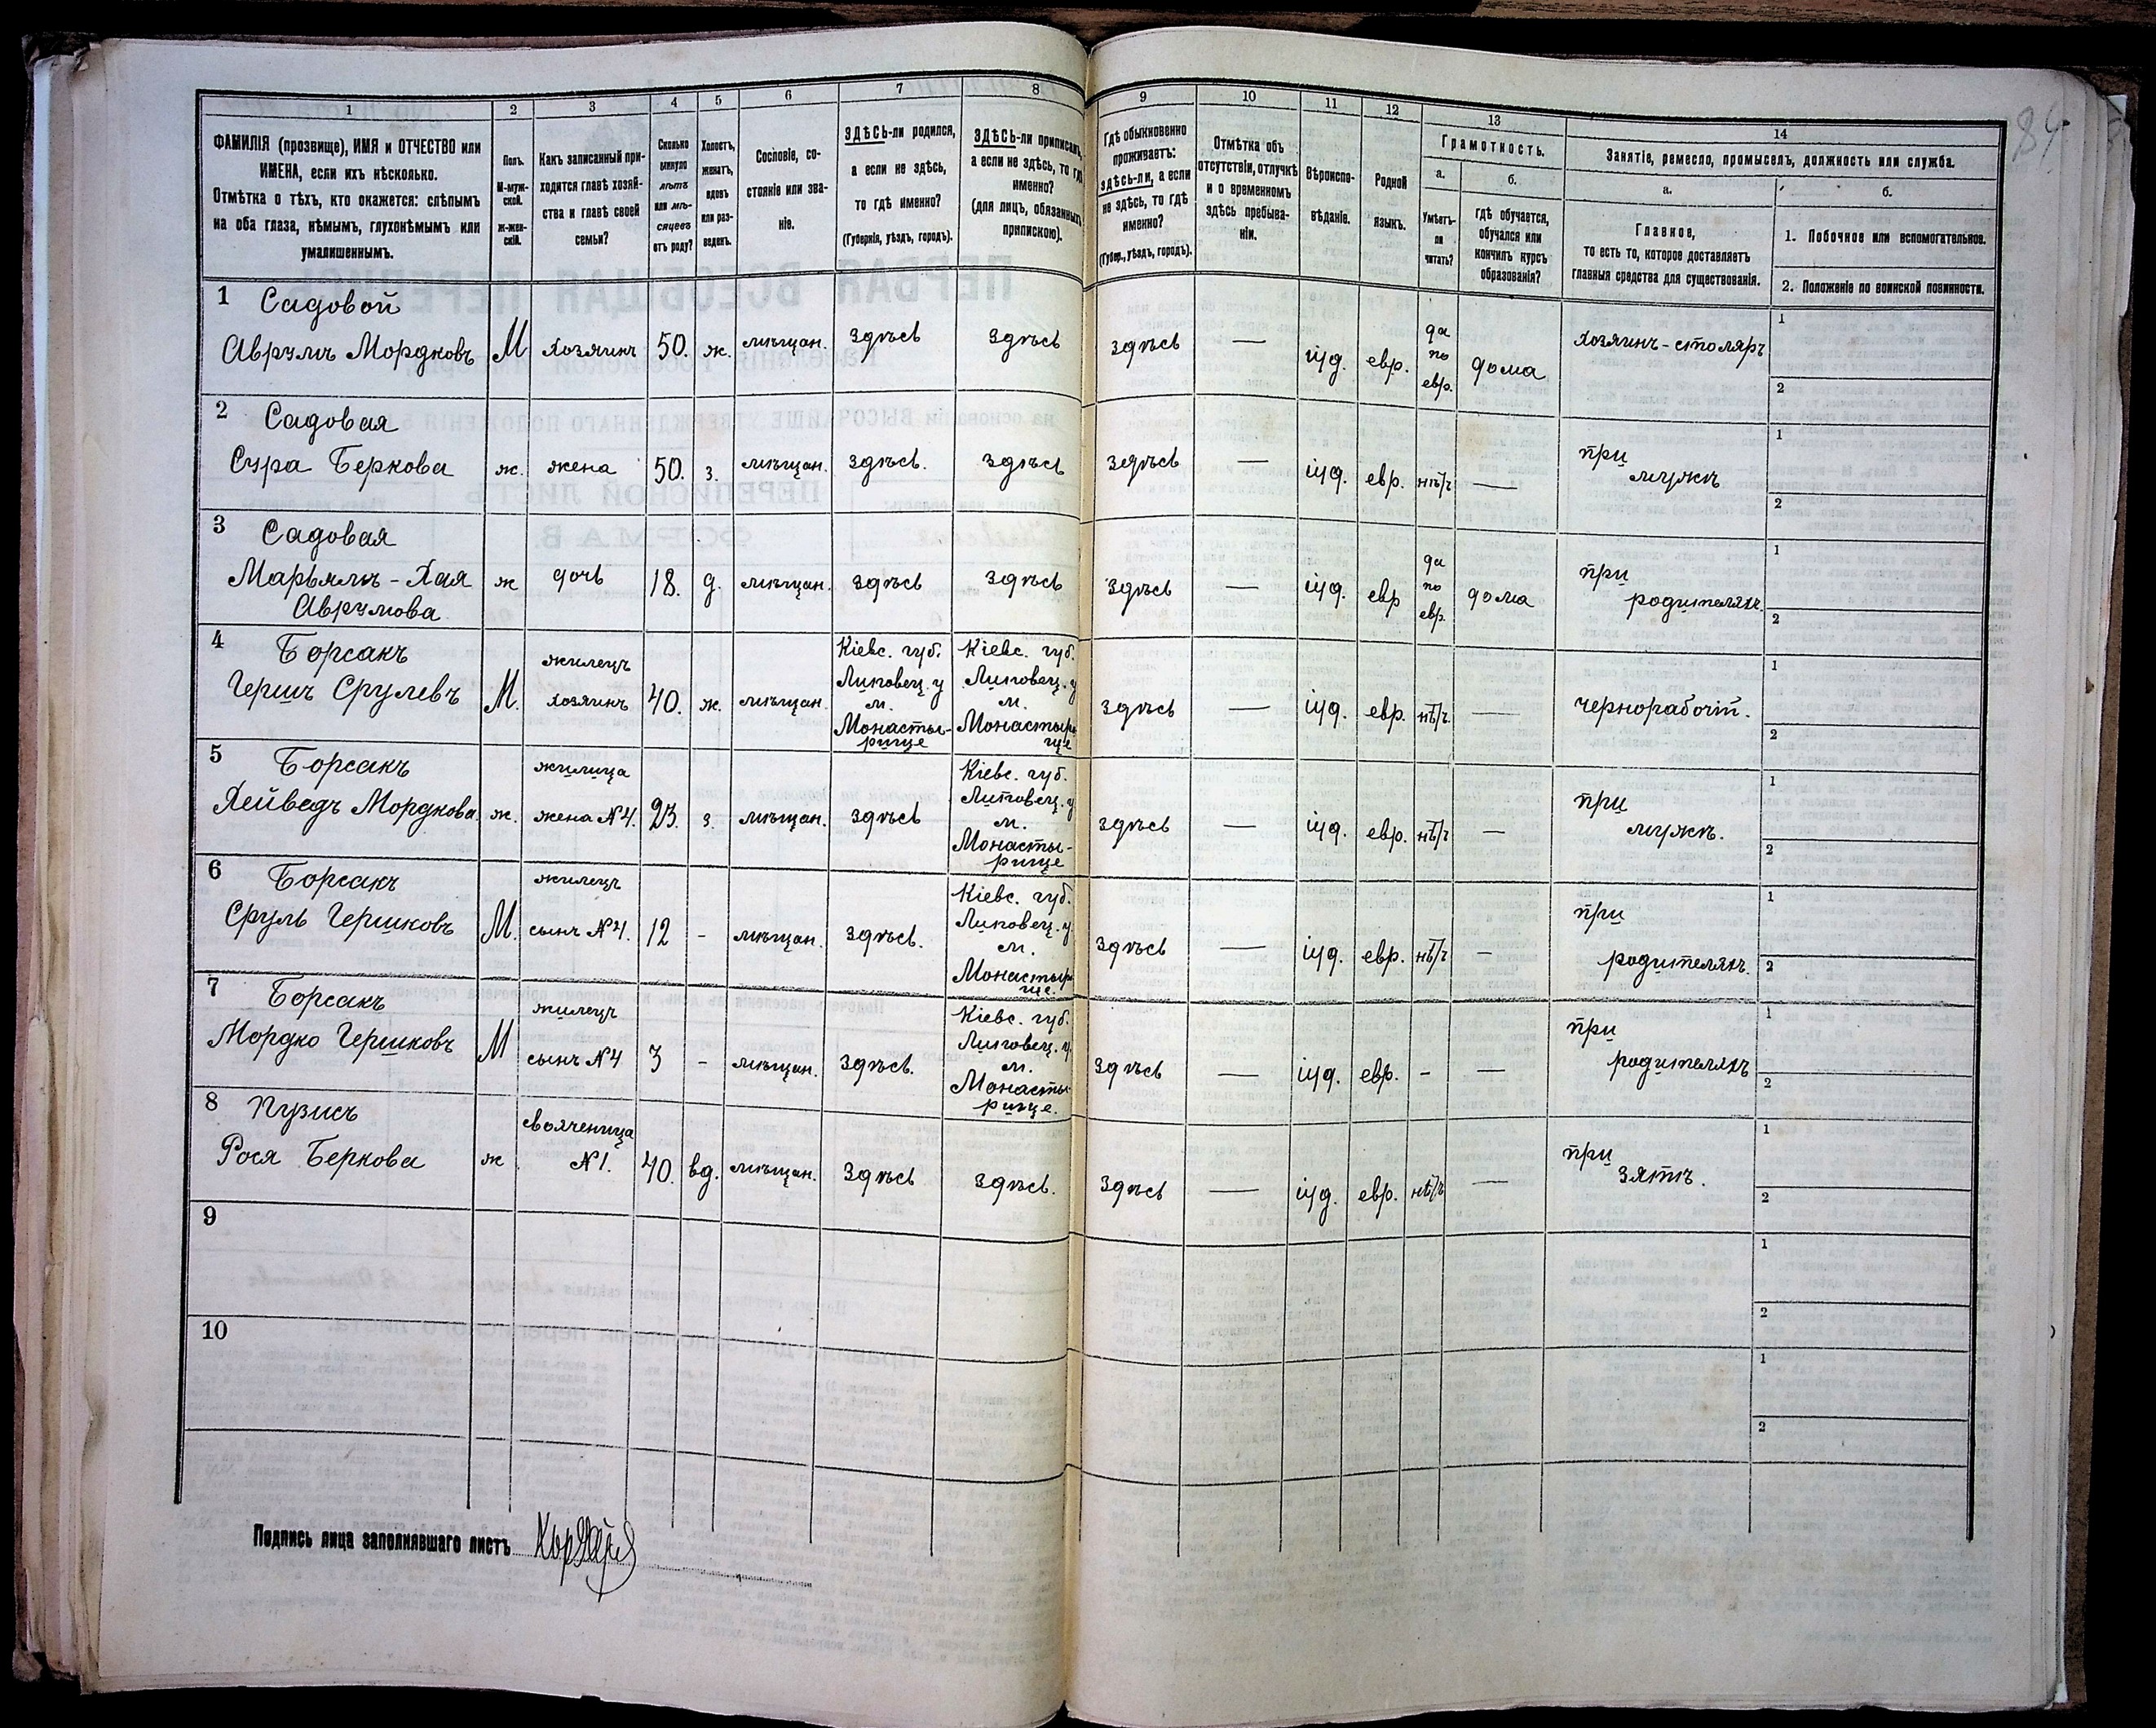 84
1 2 3 4 5 6 7 8 9 10 11 12 13 14
ФАМИЛІЯ (прозвище), ИМЯ и ОТЧЕСТВО или
ИМЕНА, если ихъ нѣсколько.
Отмѣтка о тѣхъ, кто окажется: слѣпымъ
на оба глаза, нѣмымъ, глухонѣмымъ или
умалишеннымъ.
Полъ.
М-муж-
ской.
Ж-жен-
скій.
Какъ записанный при-
ходится главѣ хозяй-
ства и главѣ своей
семьи?
Сколько
минуло
лѣтъ
или мѣ-
сяцевъ
отъ роду?
Холостъ,
женатъ,
вдовъ
или раз-
веденъ.
Сословіе, со-
стояніе или зва-
ніе.
ЗДѢСЬ-ли родился,
а если не здѣсь,
то гдѣ именно?
(Губернія, уѣздъ, городъ).
ЗДѢСЬ-ли приписанъ,
а если не здѣсь, то гдѣ
именно?
(для лицъ, обязанныхъ
припискою).
Гдѣ обыкновенно
проживаетъ:
здѣсь-ли, а если
не здѣсь, то гдѣ
именно?
(Губер., уѣздъ, городъ).
Отмѣтка объ
отсутствіи, отлучкѣ
и о временномъ
здѣсь пребыва-
ніи.
Вѣроиспо-
вѣданіе.
Родной
языкъ.
Грамотность.
а.
Умѣетъ-
ли
читать?
б.
гдѣ обучается,
обучался или
кончилъ курсъ
образованія?
Занятіе, ремесло, промыселъ, должность или служба.
а.
Главное,
то есть то, которое доставляетъ
главныя средства для существованія.
б.
1. Побочное или вспомогательное.
2. Положеніе по воинской повинности.
1 Садовой
Аврумъ Мордковъ
М
хозяинъ
50.
ж.
мѣщан.
здѣсь
здѣсь
здѣсь
—
іуд.
евр.
да
по
евр.
дома
хозяинъ-столяръ
1
2
2 Садовая
Сура Беркова
ж.
жена
50.
з.
мѣщан.
здѣсь.
здѣсь
здѣсь
—
іуд.
евр.
нѣтъ
—
при
мужѣ
1
2
3 Садовая
Марьямъ-Хая
Аврумова
ж
дочь
18.
д.
мѣщан.
здѣсь
здѣсь
здѣсь
—
іуд.
евр
да
по
евр.
дома
при
родителяхъ.
1
2
4 Борсакъ
Гершъ Срулевъ
М.
жилецъ
хозяинъ
40.
ж.
мѣщан.
Кіевс. губ.
Липовец. у
м.
Монасты-
рище
Кіевс. губ.
Липовец. у
м.
Монастыри
ще
здѣсь
—
іуд.
евр.
нѣтъ.
—
чернорабочій.
1
2
5 Борсакъ
Хейведъ Мордкова
ж.
жилица
жена №4.
23.
з.
мѣщан.
здѣсь
Кіевс. губ.
Липовец. у
м.
Монасты-
рище
здѣсь
—
іуд.
евр.
нѣтъ
—
при
мужѣ.
1
2
6 Борсакъ
Сруль Гершковъ
М.
жилецъ
сынъ №4.
12
-
мѣщан.
здѣсь.
Кіевс. губ.
Липовец. у
м.
Монастыри
ще.
здѣсь
—
іуд.
евр.
нѣтъ
—
при
родителяхъ.
1
2
7 Борсакъ
Мордко Гершковъ
М
жилецъ
сынъ №4
3
-
мѣщан.
здѣсь.
Кіевс. губ.
Липовец. у.
м.
Монасты-
рище.
здѣсь
—
іуд.
евр.
-
—
при
родителяхъ
1
2
8 Пузисъ
Рося Беркова
ж
своячница
№1.
40.
вд.
мѣщан.
здѣсь
здѣсь.
здѣсь
—
іуд.
евр.
нѣтъ
—
при
зятѣ.
1
2
9
1
2
10
1
2
Подпись лица заполнявшаго листъ